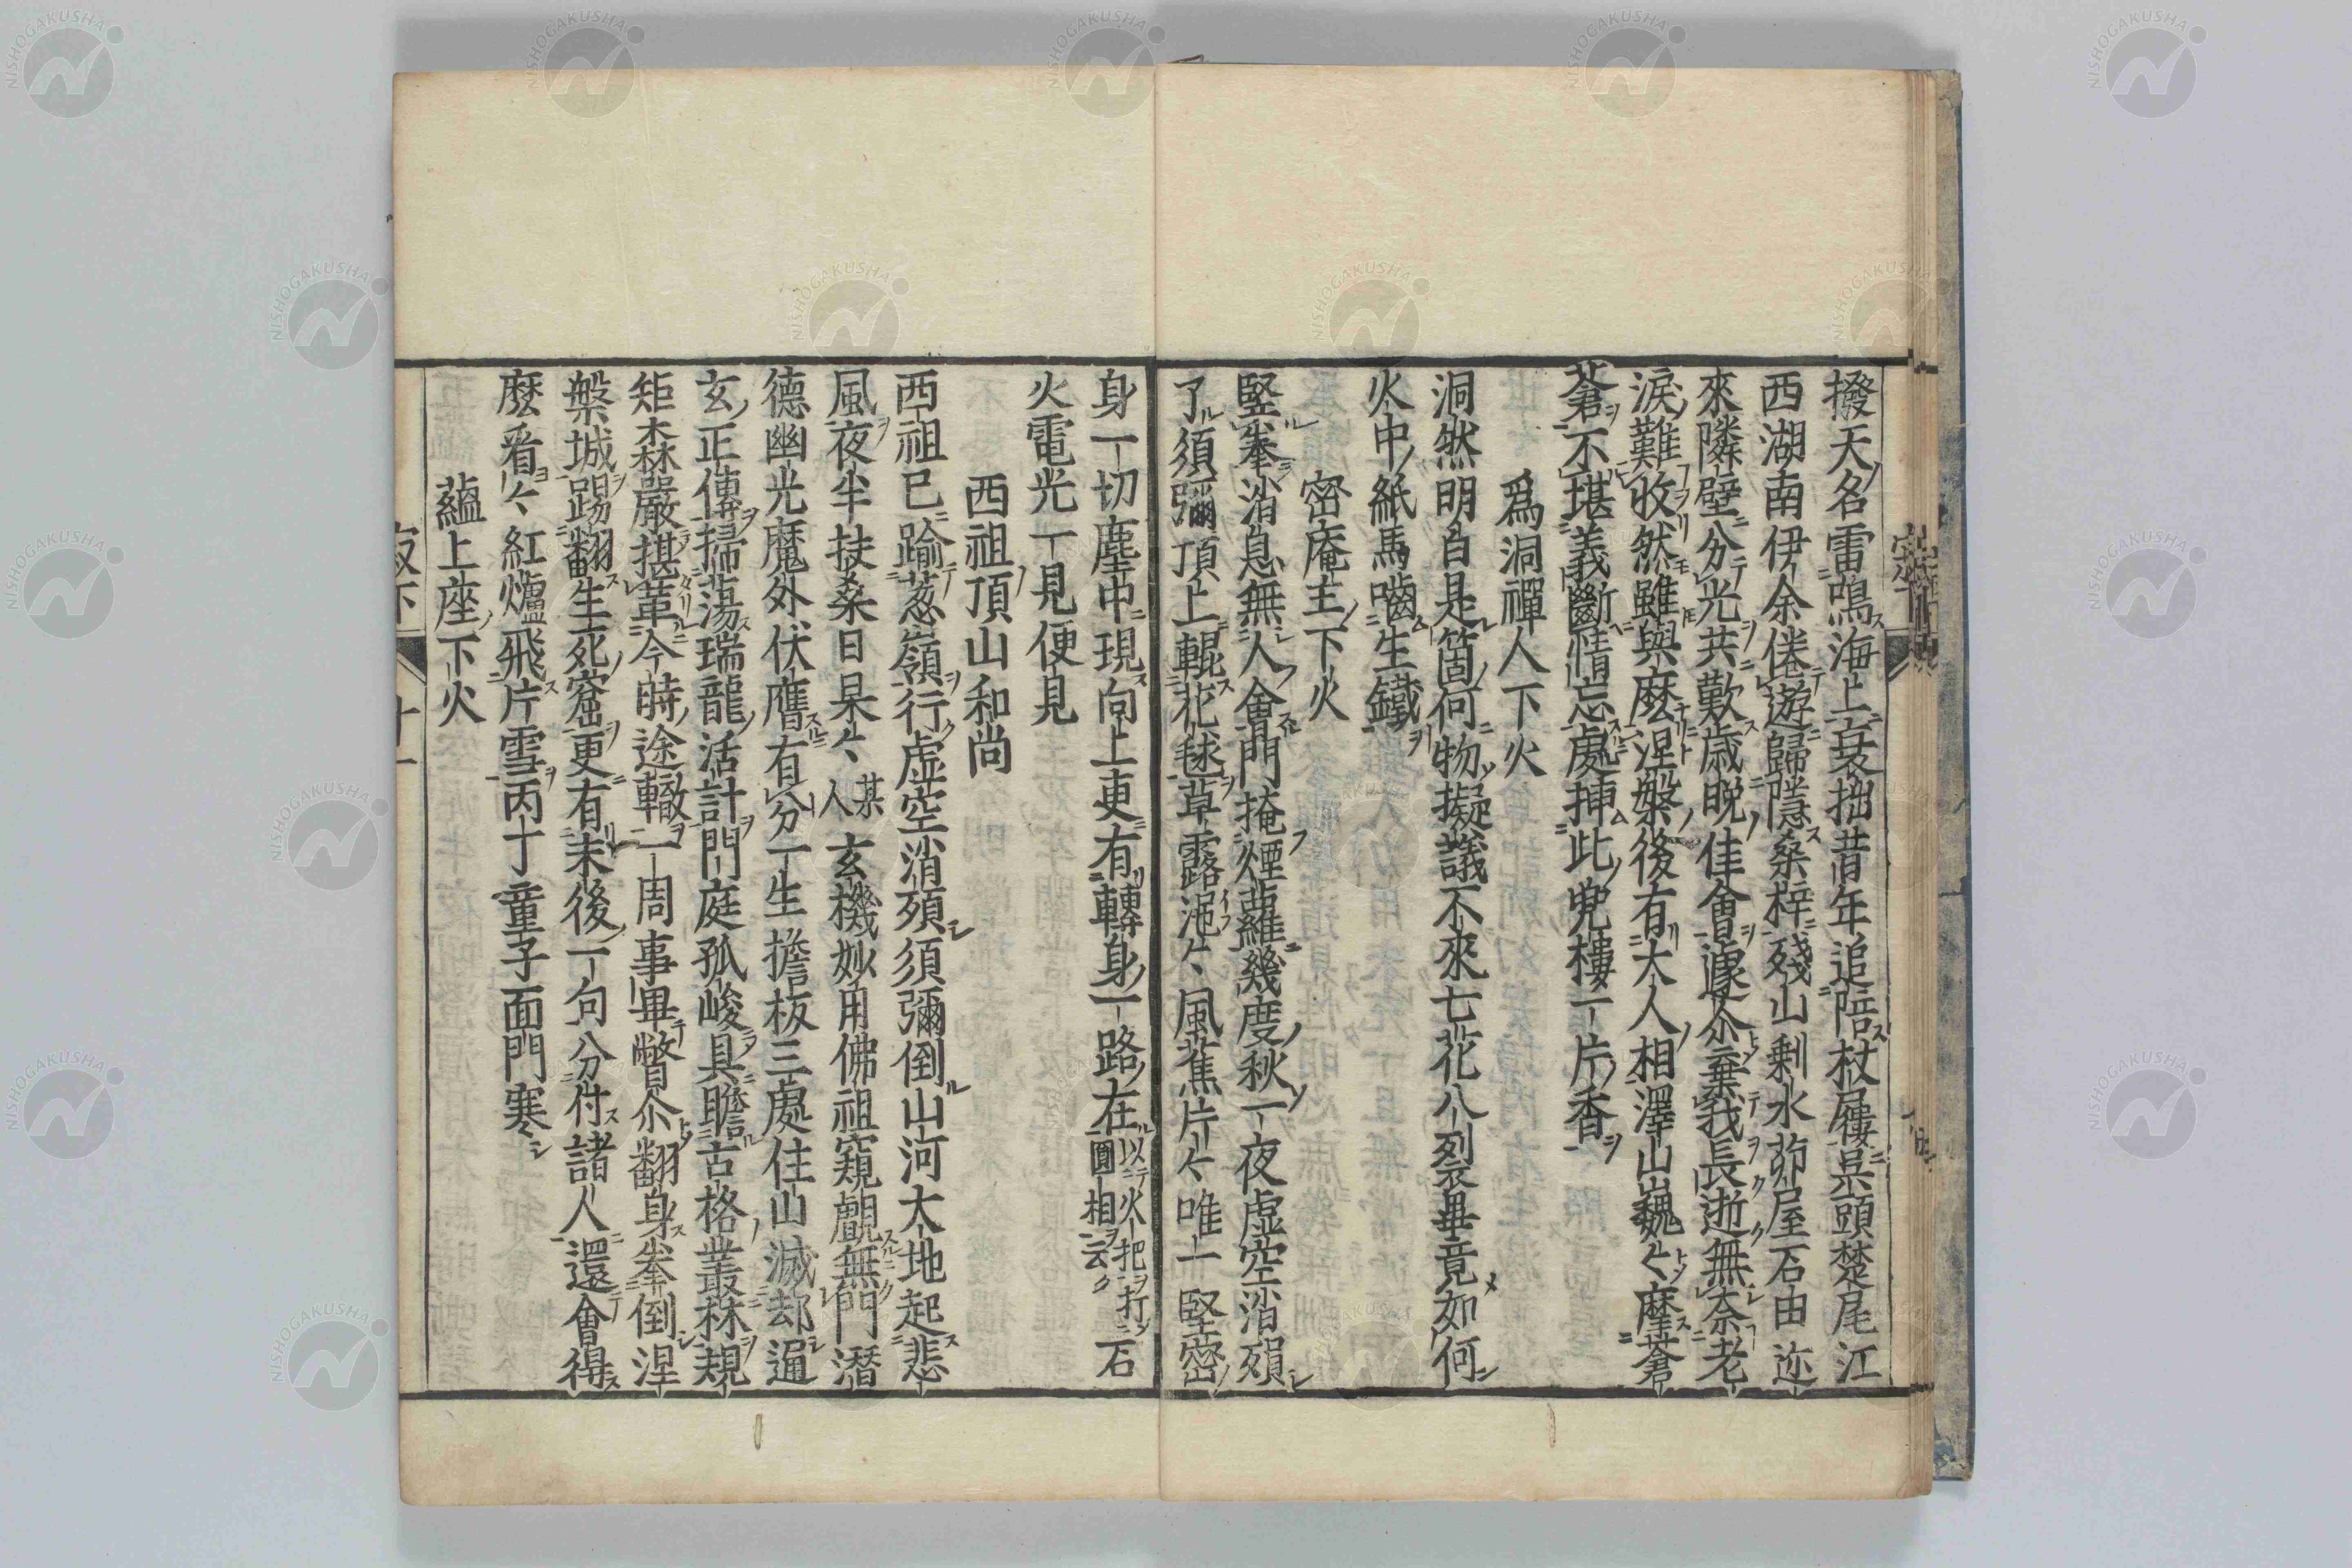 撥天名雷鳴海上衰拙昔年追陪杖屨吳頭楚尾江
西湖南伊余倦遊歸隱桑梓殘山剰水茆屋石由迩
來隣壁分光共歎歳晩佳會遽尒棄我長逝無奈老
淚難收然雖與麼涅槃後有大人相澤山巍々摩蒼
蒼不堪義斷情忘處挿此兜樓一片香
爲洞禪人下火
洞然明白是箇何物擬議不來七花八裂畢竟如何
火中紙馬嚙生鐵
密庵主下火
竪拳消息無人會門掩煙蘿幾度秋一夜虛空消殞
了須彌頂上輥花毬草露浥々風蕉片々唯一堅密
身一切塵中現向上更有轉身一路在以火把打圓相云石
火電光一見便見
西祖頂山和尚
西祖已踰葱嶺行虛空消殞須彌倒山河大地起悲
風夜半扶桑日杲々某人玄機妙用佛祖窺覰無門潛
德幽光魔外伏膺有分一生擔板三處住山滅却逼
玄正傳掃蕩瑞龍活計門庭孤峻具瞻古格叢林規
矩森嚴堪革今時途轍一周事畢瞥尒翻身峯倒涅
槃城踢翻生死窟更有末後一句分付諸人還會得
麼看々紅爐飛片雪丙丁童子面門寒
蘊上座下火
十一